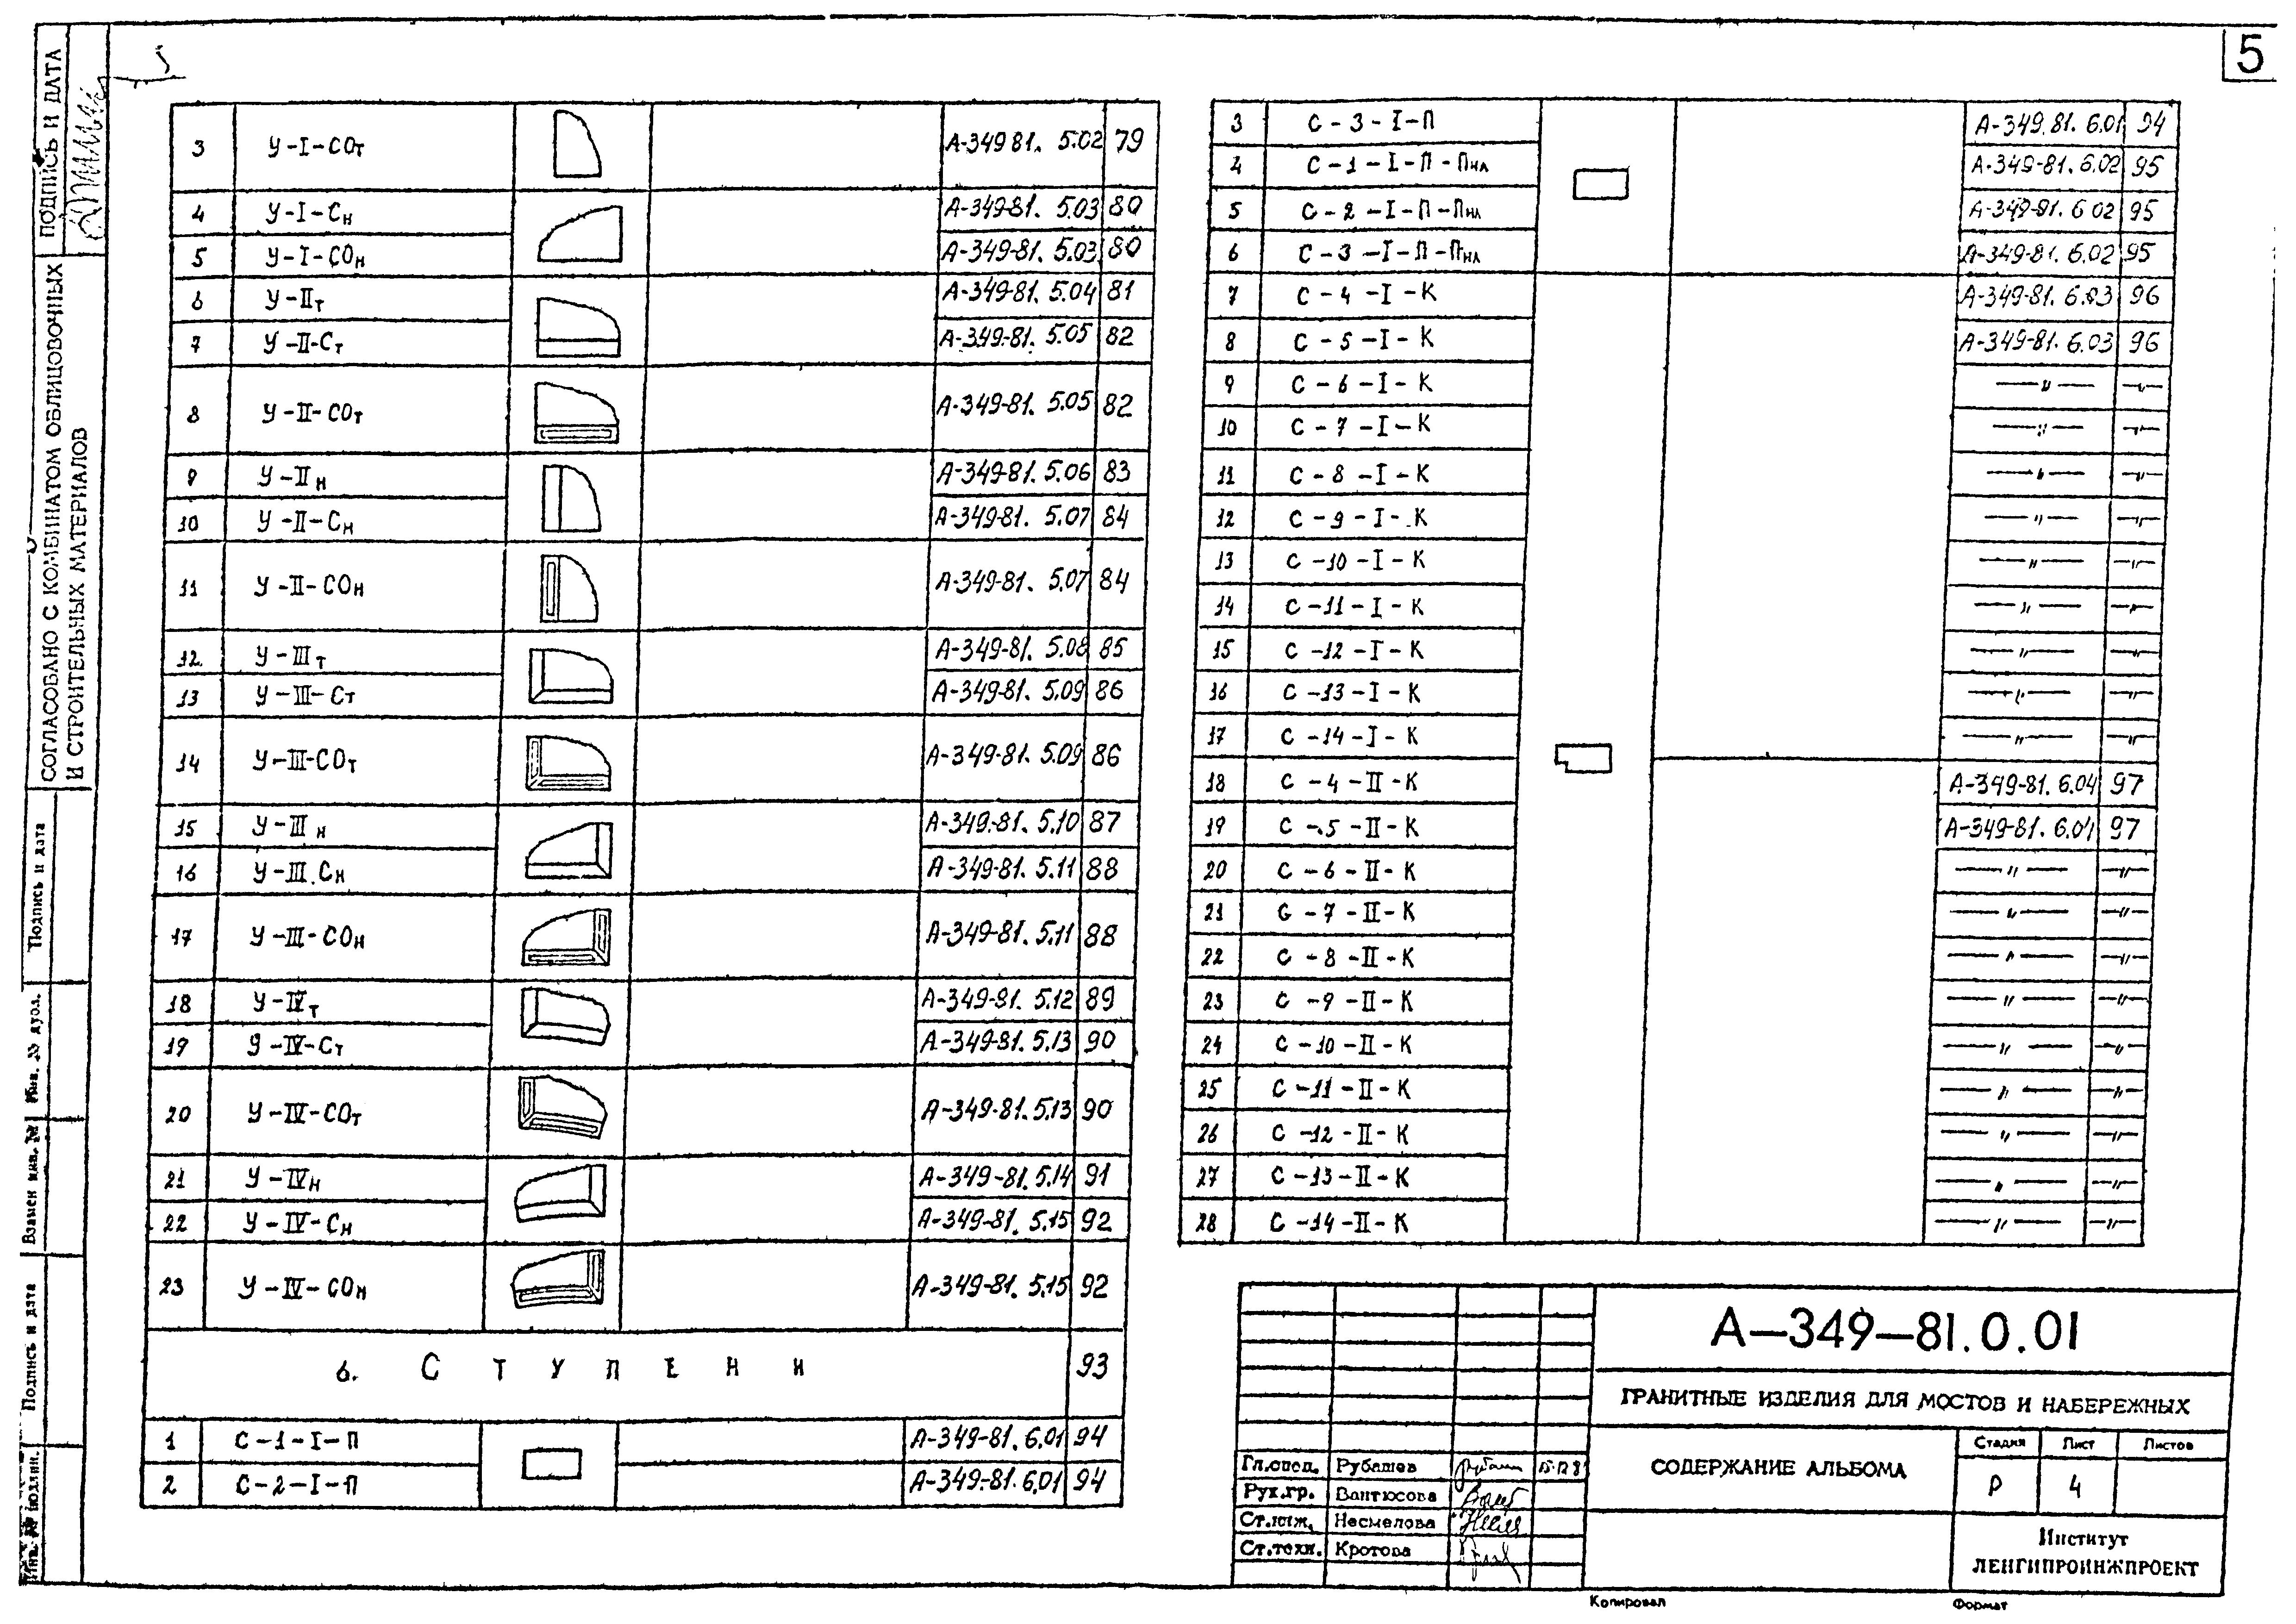 5
ПОДПИСЬ И ДАТА
СОГЛАСОВАНО С КОМБИНАТОМ ОБЛИЦОВОЧНЫХ
И СТРОИТЕЛЬНЫХ МАТЕРИАЛОВ
Подпись и дата
Инв. № дубл.
Взамен инв. №
Подпись и дата
Инв. № подлин.
3 У-I-СОт А-349 81. 5.02 79
4 У-I-Сн А-349-81. 5.03 80
5 У-I-СОн А-349-81. 5.03 80
6 У-IIт А-349-81. 5.04 81
7 У-II-Ст А-349-81. 5.05 82
8 У-II-СОт А-349-81. 5.05 82
9 У-IIн А-349-81. 5.06 83
10 У-II-Сн А-349-81. 5.07 84
11 У-II-СОн А-349-81. 5.07 84
12 У-IIIт А-349-81. 5.08 85
13 У-III-Ст А-349-81. 5.09 86
14 У-III-СОт А-349-81. 5.09 86
15 У-IIIн А-349-81. 5.10 87
16 У-III.Сн А-349-81. 5.11 88
17 У-III-СОн А-349-81. 5.11 88
18 У-IVт А-349-81. 5.12 89
19 У-IV-Ст А-349-81. 5.13 90
20 У-IV-СОт А-349-81. 5.13 90
21 У-IVн А-349-81. 5.14 91
22 У-IV-Сн А-349-81. 5.15 92
23 У-IV-СОн А-349-81. 5.15 92
6. СТУПЕНИ 93
1 С-1-I-П А-349-81. 6.01 94
2 С-2-I-П А-349-81. 6.01 94
3 С-3-I-П А-349.81. 6.01 94
4 С-1-I-П-Пнл А-349-81. 6.02 95
5 С-2-I-П-Пнл А-349-81. 6 02 95
6 С-3-I-П-Пнл А-349-81. 6.02 95
7 С-4-I-К А-349-81. 6.03 96
8 С-5-I-К А-349-81. 6.03 96
9 С-6-I-К —"— —"—
10 С-7-I-К —"— —"—
11 С-8-I-К —"— —"—
12 С-9-I-К —"— —"—
13 С-10-I-К —"— —"—
14 С-11-I-К —"— —"—
15 С-12-I-К —"— —"—
16 С-13-I-К —"— —"—
17 С-14-I-К —"— —"—
18 С-4-II-К А-349-81. 6.04 97
19 С-5-II-К А-349-81. 6.04 97
20 С-6-II-К —"— —"—
21 С-7-II-К —"— —"—
22 С-8-II-К —"— —"—
23 С-9-II-К —"— —"—
24 С-10-II-К —"— —"—
25 С-11-II-К —"— —"—
26 С-12-II-К —"— —"—
27 С-13-II-К —"— —"—
28 С-14-II-К —"— —"—
А-349-81.0.01
ГРАНИТНЫЕ ИЗДЕЛИЯ ДЛЯ МОСТОВ И НАБЕРЕЖНЫХ
СОДЕРЖАНИЕ АЛЬБОМА
Стадия Лист Листов
Р 4
Гл.спец. Рубашев
Рук.гр. Вантюсова
Ст.инж. Несмелова
Ст.техн. Кротова
Институт
ЛЕНГИПРОИНЖПРОЕКТ
Копировал Формат